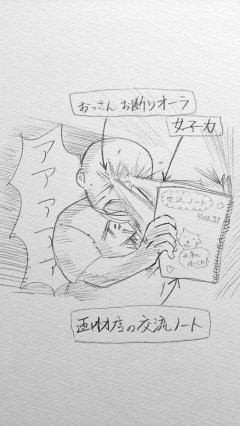 おっさんお断りオーラ
女子力
アアアアア
交流ノート
画材店の交流ノート